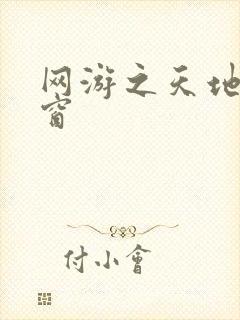 网游之天地
窗
付小會